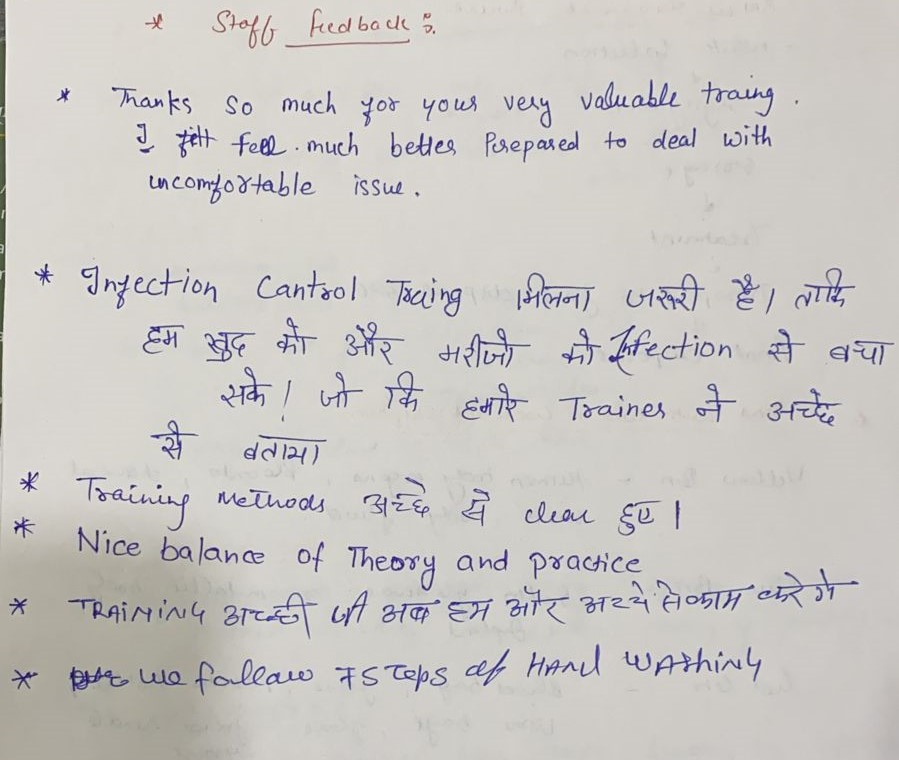 * Staff feedback :
* Thanks so much for your very valuable traing .
I feel much better Prepared to deal with
uncomfortable issue .
* Infection Cantrol Traing मिलना जरूरी है। ताकि
हम खुद को और मरीजो को Infection से बचा
सके। जो कि हमारे Trainer ने अच्छे
से बताया
* Training methods अच्छे से clear हुए।
* Nice balance of Theory and practice
* TRAINING अच्छी थी अब हम और अच्छे से काम करेगे
* we follow 7 Steps of HAND WASHING